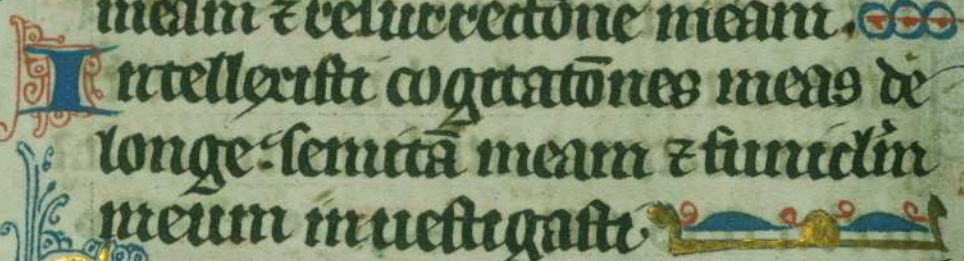 meam ⁊ resurrectōne meam.
Intellexisti cogitatōnes meas de
longe: semitā meam ⁊ funiclm̄
meum inuestigasti